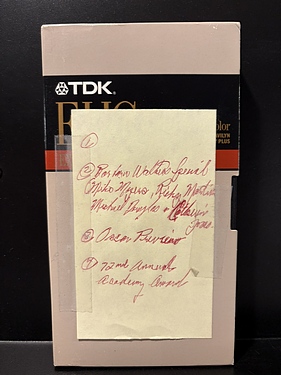 TDK
EHG
Color
AVILYN
PLUS
①
② Barbara Walters Special
Mike Myers, Ricky Martin
Michael Douglas + Catherine
Jones
③ Oscar Preview
④ 72nd Annual
Academy Award